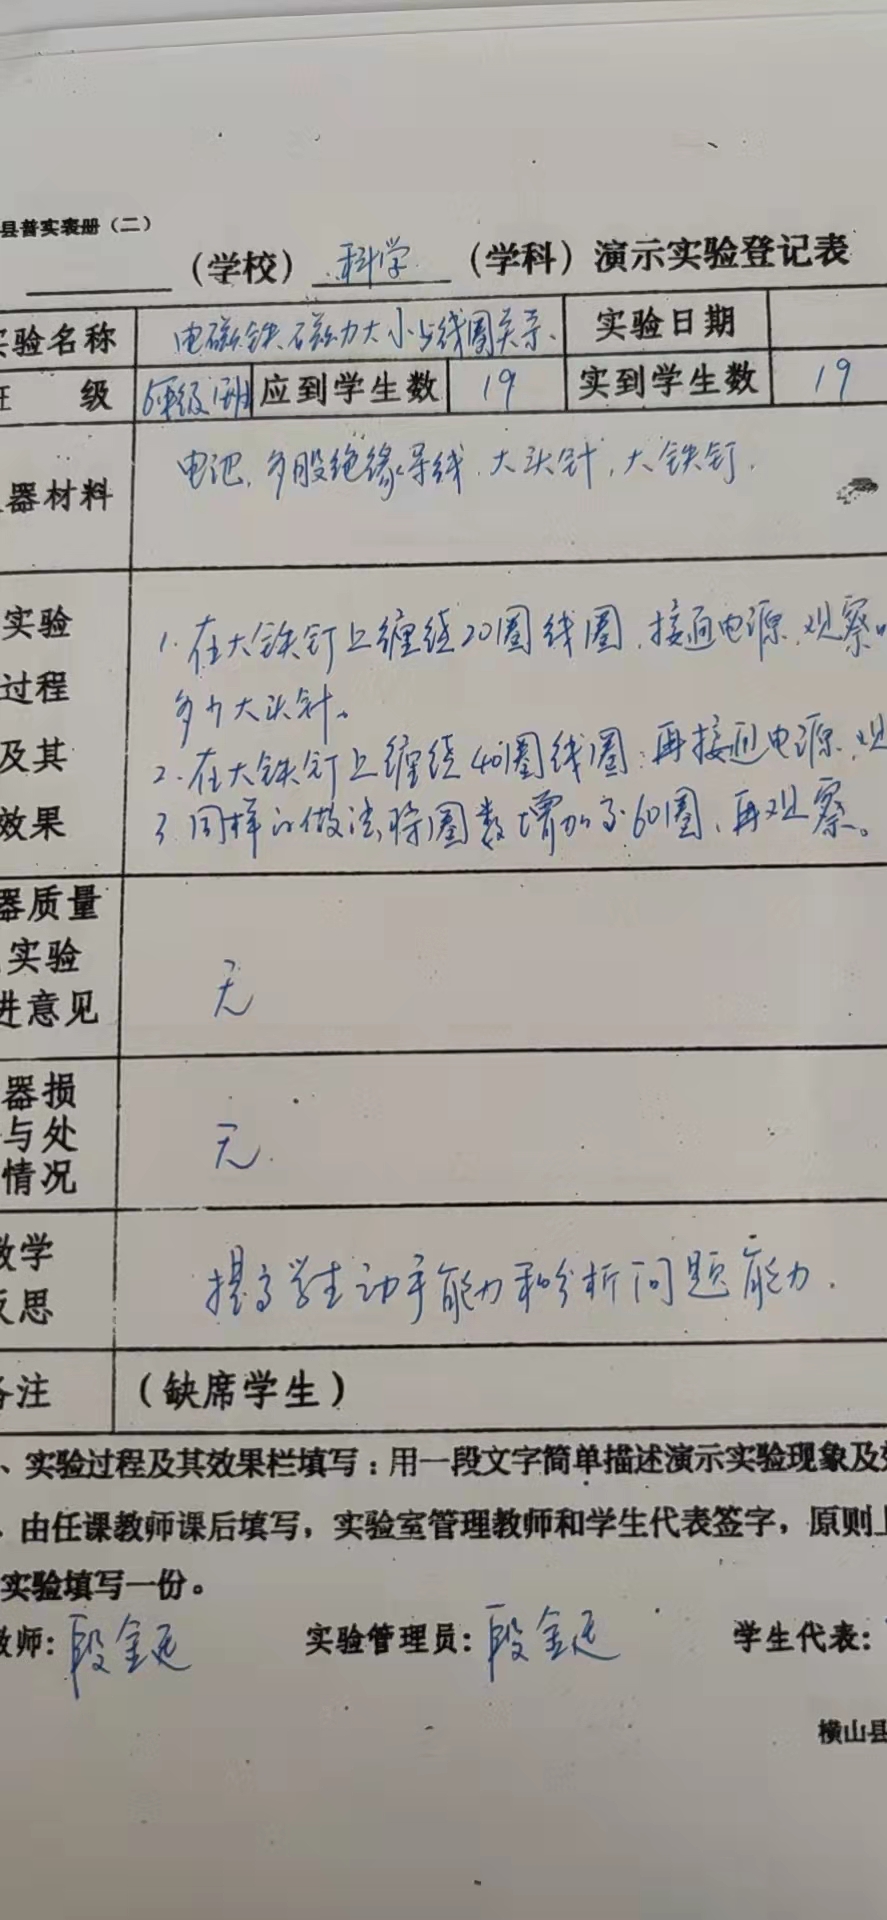 县普实表册（二）
（学校） 科学 （学科）演示实验登记表
实验名称 电磁铁磁力大小与线圈关系. 实验日期
班 级 6年级1班 应到学生数 19 实到学生数 19
器材料 电池、多股绝缘导线、大头针、大铁钉.
实验
过程
及其
效果
1. 在大铁钉上缠绕20圈线圈，接通电源，观察
多少大头针。
2. 在大铁钉上缠绕40圈线圈；再接通电源，观
3. 同样的做法将圈数增加了60圈，再观察。
器质量
实验
进意见
无
器损
与处
情况
无.
教学
反思
提高学生动手能力和分析问题能力.
备注 （缺席学生）
、实验过程及其效果栏填写：用一段文字简单描述演示实验现象及
由任课教师课后填写，实验室管理教师和学生代表签字，原则上
实验填写一份。
教师：段金廷 实验管理员：段金廷 学生代表：
横山县